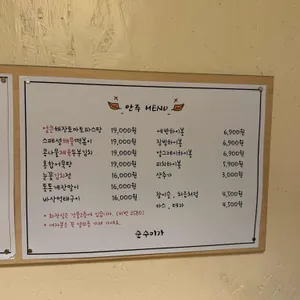 안주 MENU
얼큰해장토마토파스타 19,000원
스페셜해물떡볶이 19,000원
콩나물제육두부김치 19,000원
홍합어묵탕 19,000원
눈꽃김치전 16,000원
통통계란말이 16,000원
바삭먹태구이 16,000원
애란하이볼 6,900원
진빔하이볼 6,900원
얼그레이하이볼 6,900원
피치하이볼 5,900원
샷추가 3,000원
참이슬, 처음처럼 4,500원
카스, 테라 4,500원
* 화장실은 건물2층에 있습니다. (비번 2580)
순수이가